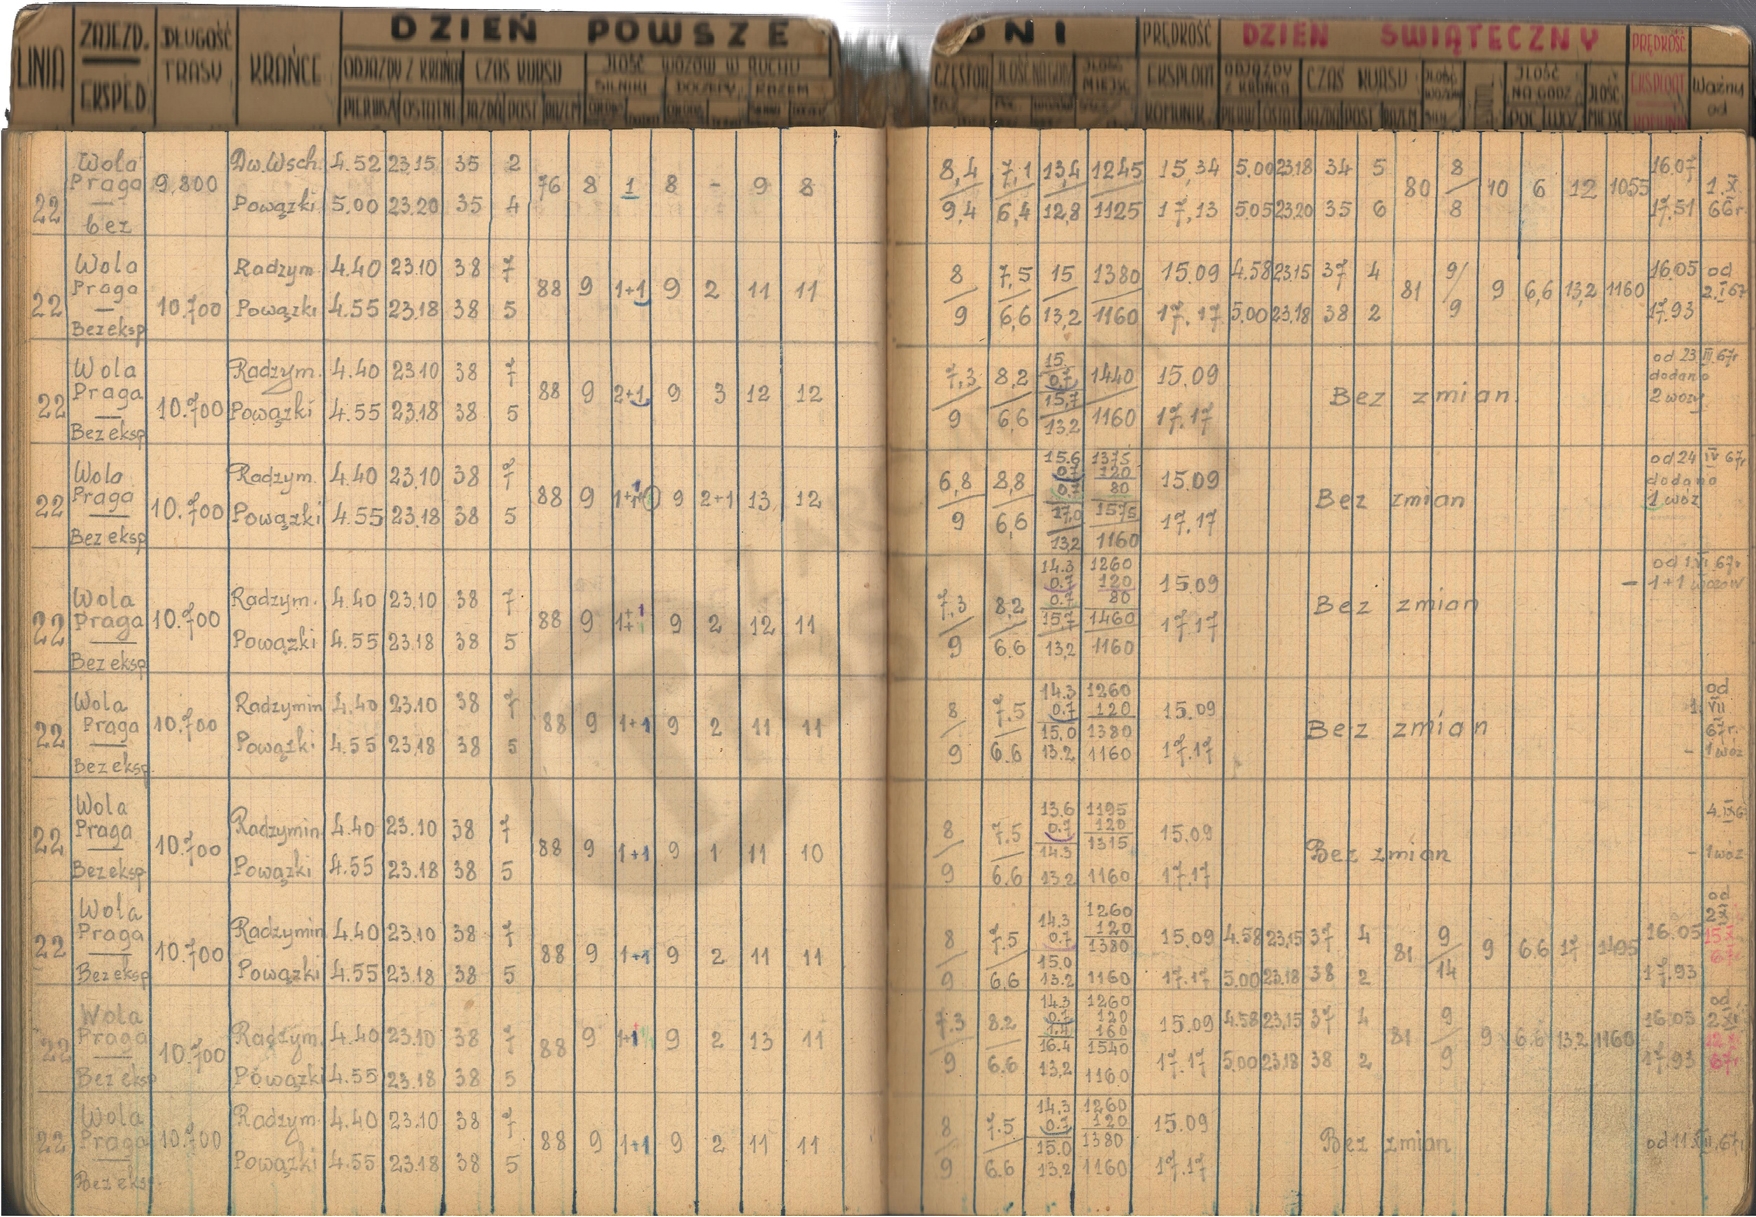 LINIA ZAJEZD. EKSPED. DŁUGOŚĆ TRASY KRAŃCE DZIEŃ POWSZE DNI PRĘDKOŚĆ EKSPLOAT KOMUNIK. DZIEŃ ŚWIĄTECZNY PRĘDKOŚĆ EKSPLOAT Ważny od
ODJAZDY Z KRAŃCA CZAS KURSU ILOŚĆ WOZÓW W RUCHU CZĘSTOT ILOŚĆ NA GODZ ILOŚĆ MIEJSC ODJAZDY Z KRAŃCA CZAS KURSU ILOŚĆ NA GODZ ILOŚĆ
SILNIKI DOCZEPY RAZEM
PIERWSZ OSTATNI JAZDA POST RAZEM PIERW OSTAT JAZDA POST RAZEM POC WOZ MIEJSC
22 Wola Praga bez 9,800
Dw.Wsch. 4.52 23.15 35 2 76 8 1 8 - 9 8 8,4 7,1 13,4 1245 15,34 5.00 23.18 34 5 80 8 10 6 12 1055 16.07 1.X
Powązki 5.00 23.20 35 4 9,4 6,4 12,8 1125 17,13 5.05 23.20 35 6 8 17.51 66r.
22 Wola Praga Bez eksp 10.700
Radzym. 4.40 23.10 38 7 88 9 1+1 9 2 11 11 8 7,5 15 1380 15.09 4.58 23.15 37 4 81 9 9 6,6 13,2 1160 16.05 od 2.I 67
Powązki 4.55 23.18 38 5 9 6,6 13,2 1160 17.17 5.00 23.18 38 2 9 17.93
22 Wola Praga Bez eksp 10.700
Radzym. 4.40 23.10 38 7 88 9 2+1 9 3 12 12 7,3 8,2 15 0.7 15,7 1440 15.09 Bez zmian. od 23 III.67r dodano 2 wozy
Powązki 4.55 23.18 38 5 9 6,6 13.2 1160 17.17
22 Wola Praga Bez eksp 10.700
Radzym. 4.40 23.10 38 7 88 9 9 2+1 13 12 6,8 8,8 15.6 0.7 17,0 1375 120 80 1575 15.09 Bez zmian od 24 IV 67r dodano 1 wóz
Powązki 4.55 23.18 38 5 9 6,6 13,2 1160 17.17
22 Wola Praga Bez eksp 10.700
Radzym. 4.40 23.10 38 7 88 9 9 2 12 11 7,3 8,2 14.3 0.7 0.7 15,7 1260 120 80 1460 15.09 Bez zmian od 1 VI 67r - 1+1 wozów
Powązki 4.55 23.18 38 5 9 6.6 13,2 1160 17.17
22 Wola Praga Bez eksp. 10.700
Radzymin 4.40 23.10 38 7 88 9 1+1 9 2 11 11 8 7.5 14.3 0.7 15,0 1260 120 1380 15.09 Bez zmian od 1 VII 67r. - 1 wóz
Powązki 4.55 23.18 38 5 9 6.6 13.2 1160 17.17
22 Wola Praga Bez eksp 10.700
Radzymin 4.40 23.10 38 7 88 9 1+1 9 1 11 10 8 7.5 13.6 0.7 14.3 1195 120 1315 15.09 Bez zmian 4.IX 6 - 1 wóz
Powązki 4.55 23.18 38 5 9 6.6 13.2 1160 17.17
22 Wola Praga Bez eksp 10.700
Radzymin 4.40 23.10 38 7 88 9 1+1 9 2 11 11 8 7.5 14.3 0.7 15.0 1260 120 1380 15.09 4.58 23.15 37 4 81 9 9 6.6 17 1495 16.05 od 2X
Powązki 4.55 23.18 38 5 9 6.6 13.2 1160 17.17 5.00 23.18 38 2 14 17.93 67r
22 Wola Praga Bez eksp 10.700
Radzym. 4.40 23.10 38 7 88 9 1+1 9 2 13 11 7.3 8.2 14.3 0.7 1.4 16.4 1260 120 160 1540 15.09 4.58 23.15 37 4 81 9 9 6.6 13.2 1160 16.05 od
Powązki 4.55 23.18 38 5 9 6.6 13,2 1160 17.17 5.00 23.18 38 2 9 17.93 67r
22 Wola Praga Bez eksp. 10.700
Radzym. 4.40 23.10 38 7 88 9 1+1 9 2 11 11 8 7.5 14.3 0.7 15.0 1260 120 1380 15.09 Bez zmian
Powązki 4.55 23.18 38 5 9 6.6 13.2 1160 17.17